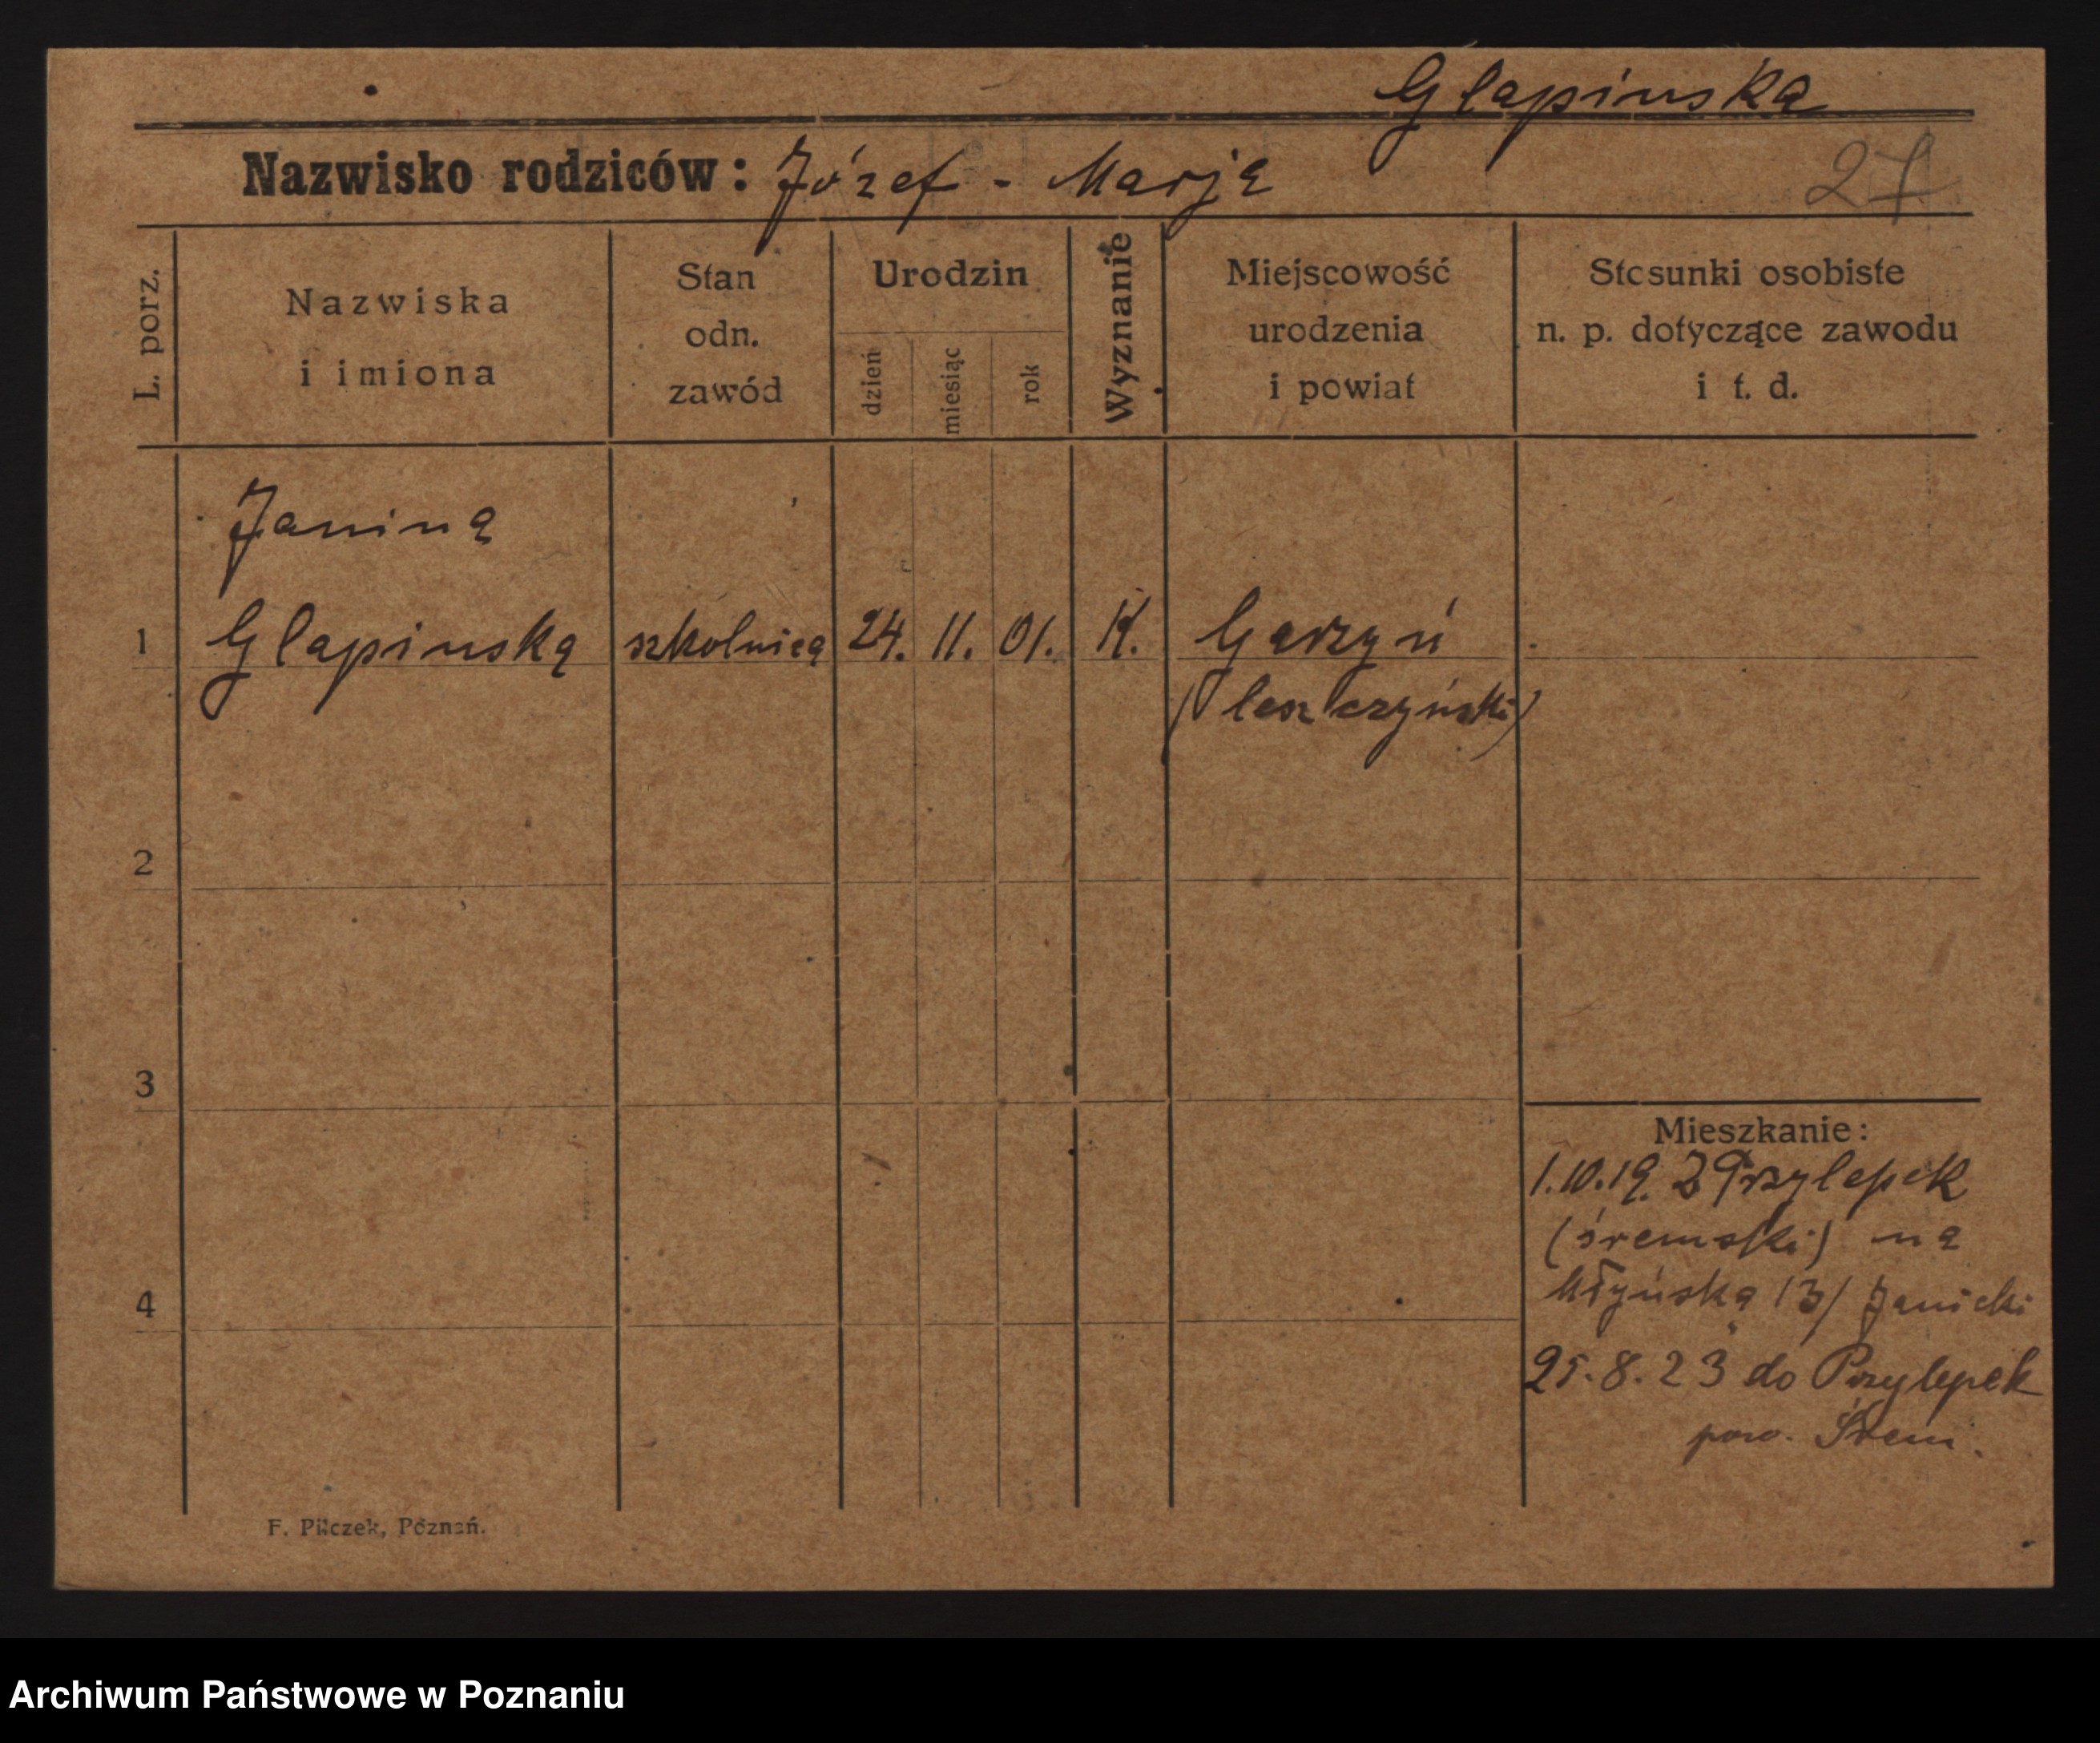 Glapinska
Nazwisko rodziców: Józef - Marja
27
L. porz.
Nazwiska
i imiona
Stan
odn.
zawód
Urodzin
dzień
miesiąc
rok
Wyznanie
Miejscowość
urodzenia
i powiat
Stosunki osobiste
n. p. dotyczące zawodu
i t. d.
Janina
1 Glapinska szkolnica 24. 11. 01. K. Garzyń
(leszczyński)
2
3
4
Mieszkanie:
1.10.19. Z Przylepek
(śremski) na
Młyńska 13/ Janicki
25.8.23 do Przylepek
pow. Śrem.
F. Pilczek, Poznań.
Archiwum Państwowe w Poznaniu